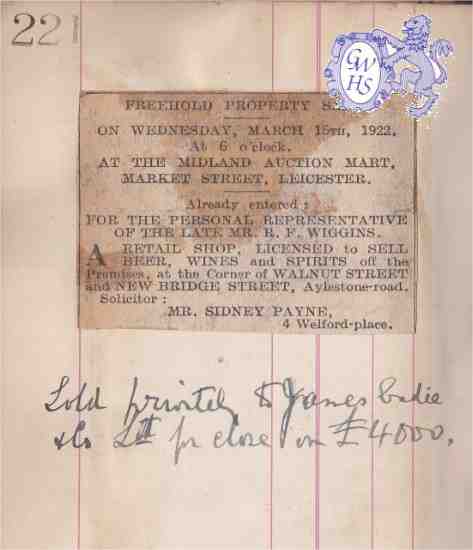 22
GW
HS
FREEHOLD PROPERTY
ON WEDNESDAY, MARCH 15TH, 1922,
At 6 o'clock.
AT THE MIDLAND AUCTION MART,
MARKET STREET, LEICESTER.
Already entered:
FOR THE PERSONAL REPRESENTATIVE
OF THE LATE MR. R. F. WIGGINS.
A RETAIL SHOP, LICENSED to SELL
BEER, WINES and SPIRITS off the
Premises, at the Corner of WALNUT STREET
and NEW BRIDGE STREET, Aylestone-road.
Solicitor:
MR. SIDNEY PAYNE,
4 Welford-place.
Sold privately to James Eadie
& Co Ltd for close on £4000.